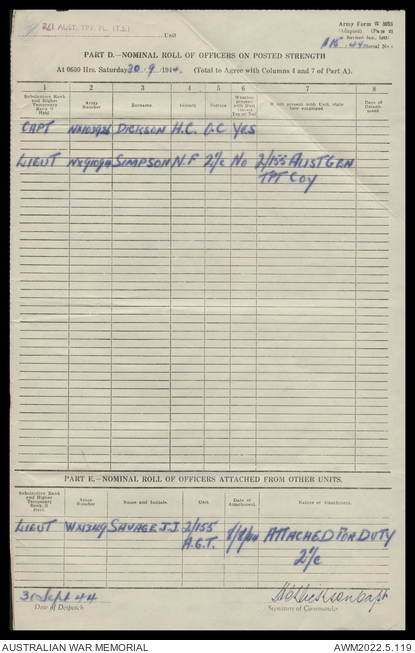 2/1 AUST. TPT. PL. (T.E.) Unit
Army Form W 3008
(Adapted) (Page 2)
Revised Jan., 1943
Serial No.
PART D.—NOMINAL ROLL OF OFFICERS ON POSTED STRENGTH
At 0600 Hrs. Saturday 30.9.1944. (Total to Agree with Columns 4 and 7 of Part A).
1 2 3 4 5 6 7 8
Substantive Rank and Higher Temporary Rank if Held
Army Number
Surname
Initials
Posted
Whether present with Unit Yes or No
If not present with Unit, state how employed
Date of
CAPT DICKSON H.C. O.C YES
LIEUT SIMPSON N.F 2I/C NO 2/155 AUST GEN
TPT COY
PART E.—NOMINAL ROLL OF OFFICERS ATTACHED FROM OTHER UNITS.
Substantive Rank and Higher Temporary Rank, if Held.
Army Number
Name and Initials.
Unit.
Date of Attachment.
Nature of Attachment.
LIEUT SAVAGE J.J. 2/155 8/8/44 ATTACHED FOR DUTY
A.G.T. 2I/C
30 Sept 44
Date of Despatch
Signature of Commander
AUSTRALIAN WAR MEMORIAL
AWM2022.5.119